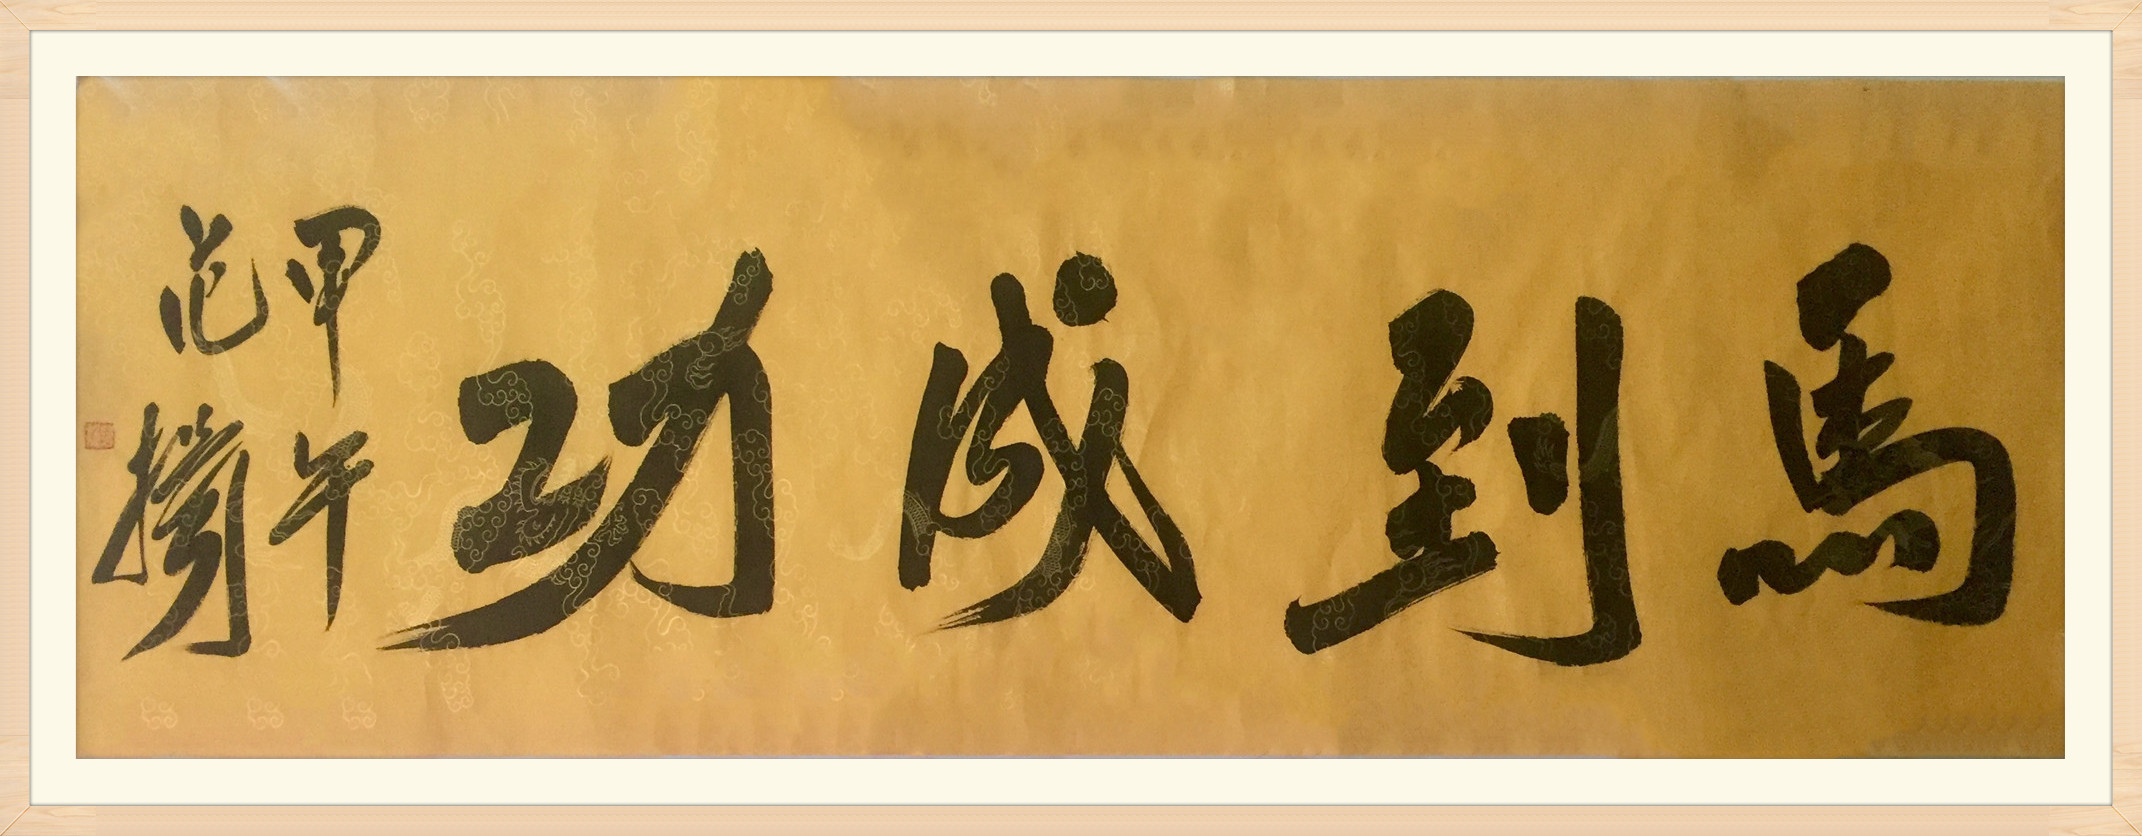 馬到成功
甲午
范